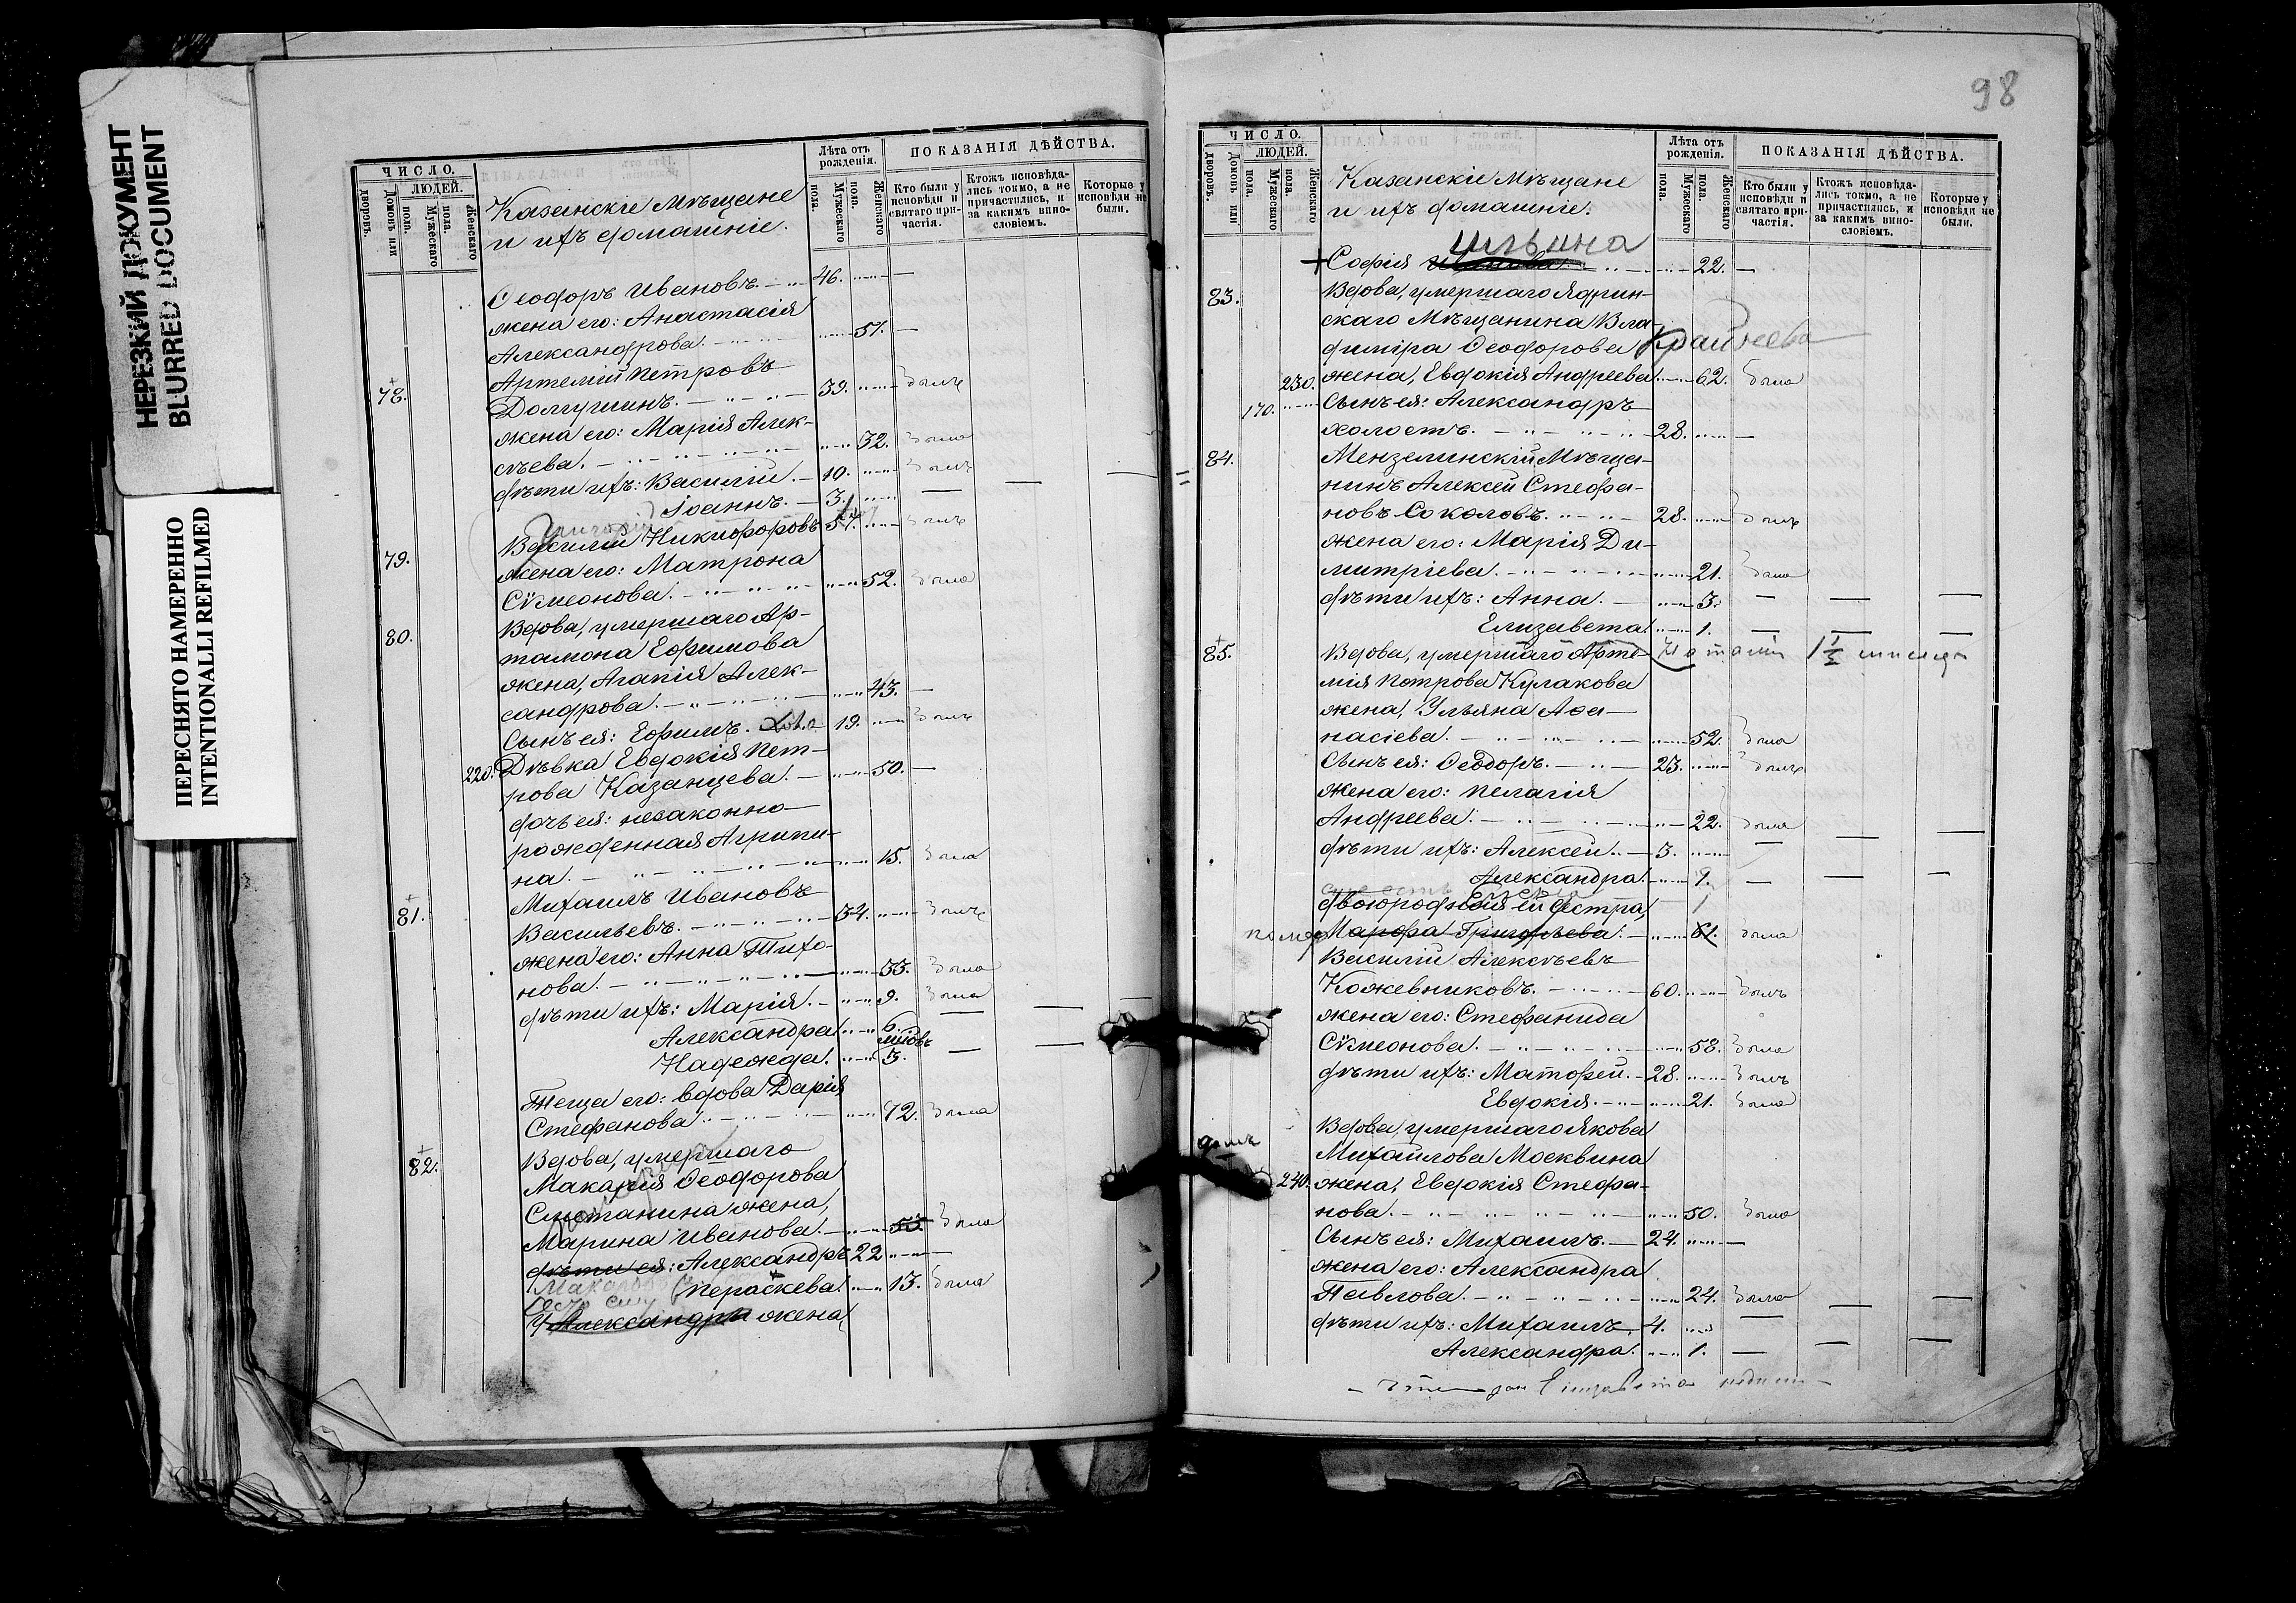 НЕРЕЗКИЙ ДОКУМЕНТ
BLURRED DOCUMENT
ПЕРЕСНЯТО НАМЕРЕННО
INTENTIONALLI REFILMED
ЧИСЛО.
ЛЮДЕЙ.
Домовъ или дворовъ.
Мужескаго пола.
Женскаго пола.
Казанскіе Мѣщане
и ихъ домашніе.
Лѣта отъ рожденія.
Мужескаго пола.
Женскаго пола.
ПОКАЗАНІЯ ДѢЙСТВА.
Кто были у исповѣди и святаго причастія.
Ктожъ исповѣдались токмо, а не причастились, и за какимъ винословіемъ.
Которые у исповѣди не были.
Ѳеодоръ Ивановъ. 46. —
жена его: Анастасія
Александрова. 51. —
78. Артемій Петровъ
Долгушинъ. 39. былъ
жена его: Марія Алек-
сѣева. 32. была
дѣти ихъ: Василій. 10. былъ
Іоаннъ. 3. — —
79. Василій Никифоровъ 57. былъ
жена его: Матрона
Сѵмеонова. 52. была
80. Вдова, умершаго Ар-
тамона Ефимова
жена, Агапія Алек-
сандрова. 43. —
Сынъ ея: Ефимъ. 19. былъ
220. Дѣвка Евдокія Пет-
рова Казанцева. 50. —
дочь ея: незаконно-
рожденная Агрипи-
на. 15. была
81. Михаилъ Ивановъ
Васильевъ. 34. былъ
жена его: Анна Тихо-
нова. 33. была
дѣти ихъ: Марія. 9. была
Александра 6. — —
Надежда. 3. — —
Теща его: вдова Дарія
Стефанова. 72. была
82. Вдова, умершаго
Макарія Ѳеодорова
Сметанина жена,
Марина Иванова. 53. была
дѣти ея: Александръ 22 —
Параскева. 13. была
Александра жена
98
ЧИСЛО.
ЛЮДЕЙ.
Домовъ или дворовъ.
Мужескаго пола.
Женскаго пола.
Казанскіе Мѣщане
и ихъ домашніе.
Лѣта отъ рожденія.
Мужескаго пола.
Женскаго пола.
ПОКАЗАНІЯ ДѢЙСТВА.
Кто были у исповѣди и святаго причастія.
Ктожъ исповѣдались токмо, а не причастились, и за какимъ винословіемъ.
Которые у исповѣди не были.
Ильина
Софія 22. —
83. Вдова, умершаго Ядрин-
скаго Мѣщанина Вла-
диміра Ѳеодорова
230. жена, Евдокія Андреева 62. была
170. Сынъ ея: Александръ
холостъ. 28. —
84. Мензелинскій Мѣща-
нинъ Алексей Стефа-
новъ Соколовъ. 28. былъ
жена его: Марія Ди-
митріева. 21. была
дѣти ихъ: Анна. 3. — — —
Елизавета. 1. — — —
85. Вдова, умершаго Арте-
мія Петрова Кулакова
жена, Ульяна Аѳа-
насіева. 52. была
Сынъ ея: Ѳеодоръ. 23. былъ
жена его: Пелагія
Андреева. 22. была
дѣти ихъ: Алексей. 3. — — —
Александра. 1. — — —
двоюродная ей сестра,
Марфа Григорьева. 61. была
Василій Алексѣевъ
Кожевниковъ. 60. былъ
жена его: Стефанида
Сѵмеонова. 58. была
дѣти ихъ: Матфей. 28. былъ
Евдокія. 21. была
Вдова, умершаго Якова
Михаилова Москвина
240. жена, Евдокія Стефа-
нова. 50. была
Сынъ ея: Михаилъ. 24. —
жена его: Александра
Павлова. 24. была
дѣти ихъ: Михаилъ. 4. — — —
Александра. 1. — — —